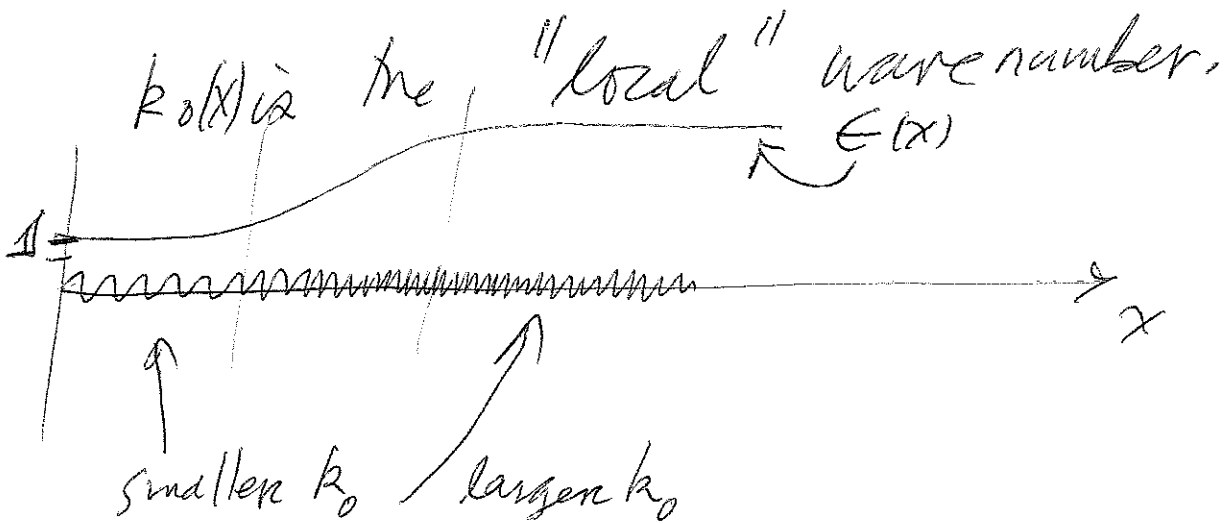 k₀(x) is the "local" wavenumber.
ϵ(x)
1
x
smaller k₀
larger k₀